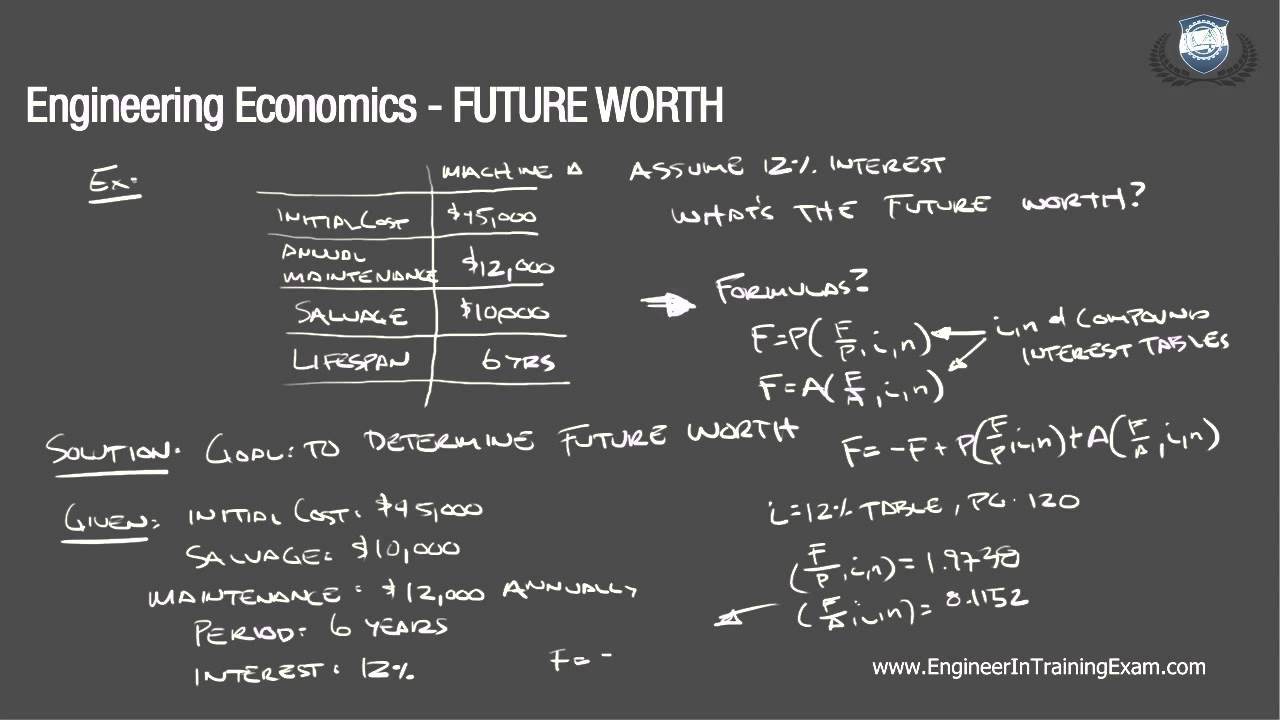 Engineering Economics - FUTURE WORTH
Ex:
MACHINE A
INITIAL COST $45,000
ANNUAL MAINTENANCE $12,000
SALVAGE $10,000
LIFESPAN 6 YRS
ASSUME 12% INTEREST
WHAT'S THE FUTURE WORTH?
FORMULAS?
F=P(F/P, i, n)
F=A(F/A, i, n)
i, n & COMPOUND
INTEREST TABLES
SOLUTION: GOAL: TO DETERMINE FUTURE WORTH
F=-F+P(F/P, i, n)+A(F/A, i, n)
GIVEN: INITIAL COST: $45,000
SALVAGE: $10,000
MAINTENANCE: $12,000 ANNUALLY
PERIOD: 6 YEARS
INTEREST: 12%
i=12% TABLE, PG. 120
(F/P, i, n)=1.9738
(F/A, i, n)=8.1152
F= -
www.EngineerInTrainingExam.com